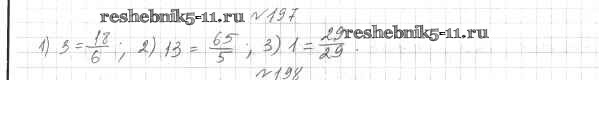 reshebnik5-11.ru №197
1) 3 = 18/6 ; 2) 13 = 65/5 ; 3) 1 = 29/29 . reshebnik5-11.ru
№198